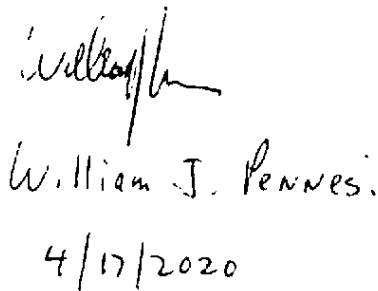 William J. Pennes.
4/17/2020